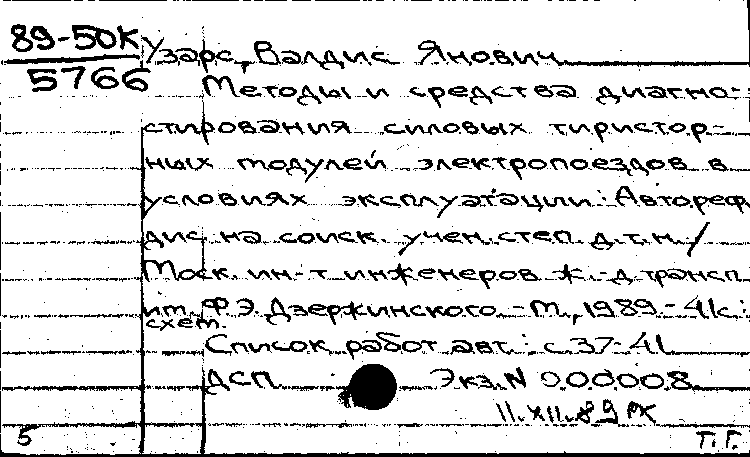 89-50К
5766
Узарс, Валдис Янович
Методы и средства диагно-
стирования силовых тиристор-
ных модулей электропоездов в
условиях эксплуатации: Автореф.
дис. на соиск. учен. степ. д.т.н. /
Моск. ин-т инженеров ж.-д. трансп.
им. Ф.Э. Дзержинского. - М., 1989 - 41с.:
схем.
Список работ авт.: с.37-41
ДСП Экз. N 000008
11.XII.89
5 Т.Г.